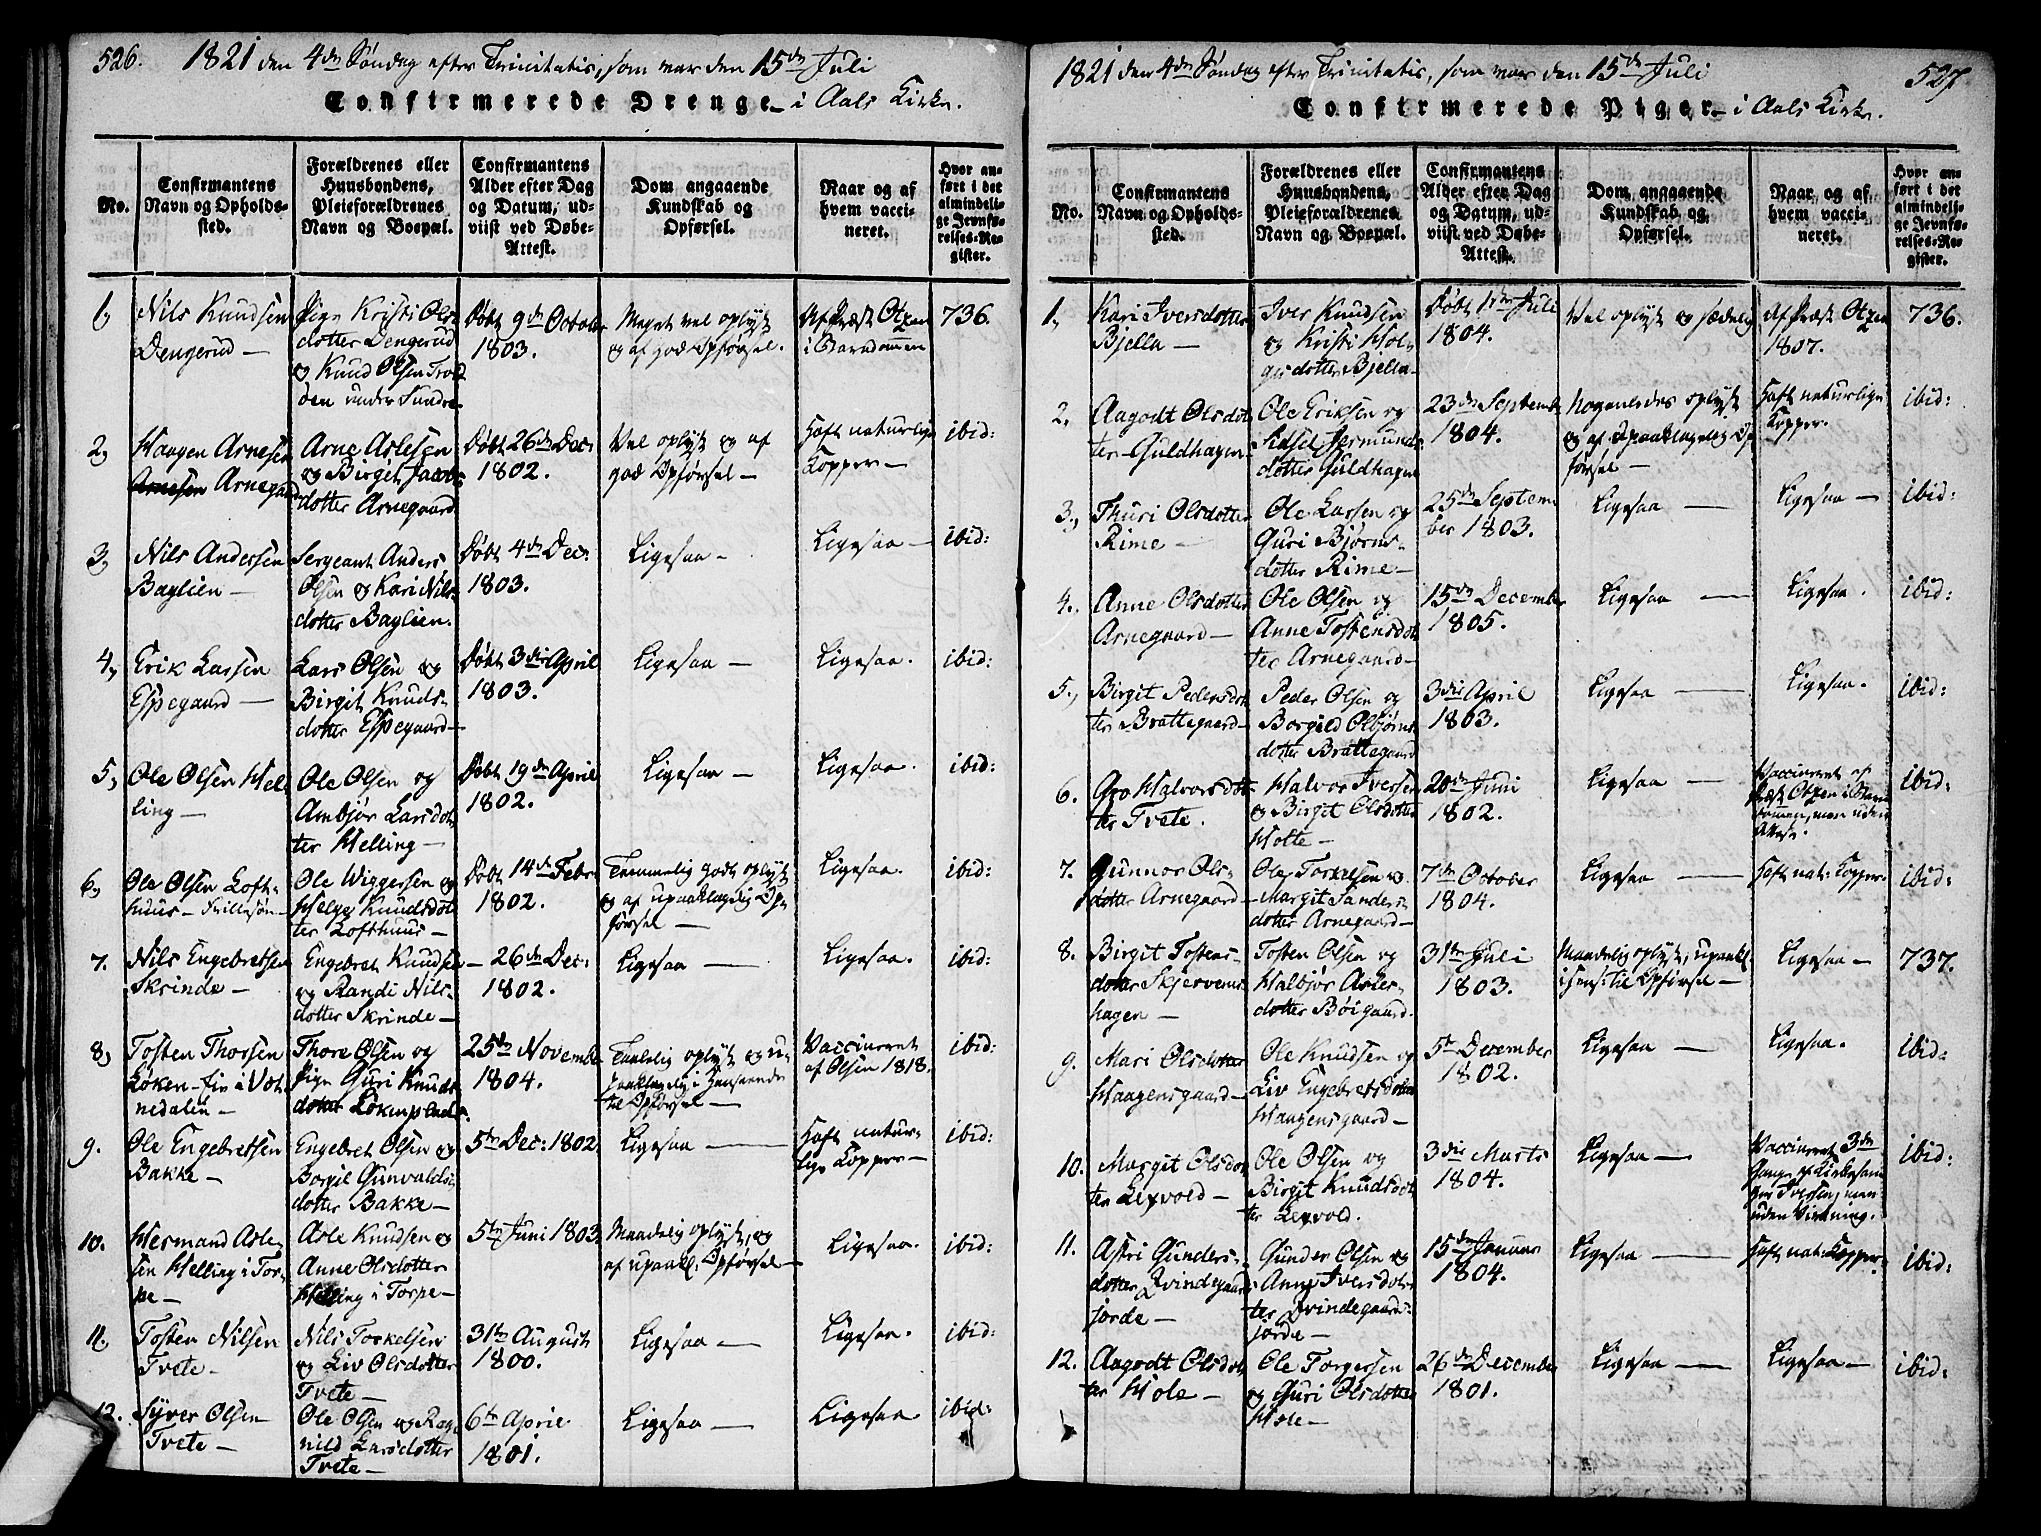 526. 1821 den 4de Søndag efter Trinitatis, som var den 15de Juli
Confirmerede Drenge i Aals Kirke.
No.
Confirmantens
Navn og Opholds-
sted.
Forældrenes eller
Huusbondens,
Pleieforældrenes
Navn og Boepæl.
Confirmantens
Alder efter Dag
og Datum, ud-
viist ved Døbe-
Attest.
Dom angaaende
Kundskab og
Opførsel.
Naar og af
hvem vacci-
neret.
Hvor an-
ført i det
almindeli-
ge Jevnfø-
relses-Re-
gister.
1, Nils Knudsen
Dengerud —
Pige Kristi Ols
dotter Dengerud
og Knud Olsen Trod
den under Sundre
Døbt 9de October
1803.
Meget vel oplyst
og af god Opførsel.
Af Præst Otzen
i Barndommen
736.
2, Haagen Arnesen
Arnesen Arnegaard
Arne Aslesen
og Birgit Jacobs
dotter Arnegaard
Døbt 26de Dec:
1802.
Vel oplyst og af
god Opførsel —
Haft naturlige
Kopper —
ibid:
3, Nils Andersen
Baglien —
Sergeant Anders
Olsen og Kari Nils-
dotter Baglien.
Døbt 4de Dec:
1803.
Ligesaa —
Ligesaa —
ibid:
4, Erik Larsen
Espegaard —
Lars Olsen og
Birgit Knuds-
dotter Espegaard —
Døbt 3die April
1803.
Ligesaa —
Ligesaa.
ibid:
5, Ole Olsen Hel
ling —
Ole Olsen og
Ambjør Larsdot
ter Helling —
Døbt 19de April
1802.
Ligesaa —
Ligesaa.
ibid:
6, Ole Olsen Loft-
huus — Frillesøn —
Ole Wiggersen og
Helge Knudsdot
ter Lofthuus —
Døbt 14de Febr
1802.
Temmelig godt oplyst
og af upaaklagelig Op-
førsel —
Ligesaa.
ibid:
7. Nils Engebretsen
Skrinde —
Engebret Knudsen
og Randi Nils-
dotter Skrinde —
— 26de Dec:
1802.
Ligesaa —
Ligesaa.
ibid:
8, Tosten Thorsen
Løken
nedalen —
Thore Olsen og
Pige Guri Knuds
dotter
25de Novembe
1804.
Taalelig oplyst og u-
paaklagelig i Henseende
til Opførsel —
Vaccineret
af Olsen 1818.
ibid:
9. Ole Engebretsen
Bakke —
Engebret Olsen og
Borgil Gunvalds-
dotter Bakke —
5te Dec: 1802
Ligesaa —
Haft natur-
lige Kopper —
ibid:
10. Hermand Asle-
sen Helling i Tor-
pe —
Asle Knudsen og
Anne Olsdotter
Helling i Torpe —
5te Juni 1803.
Maadelig oplyst, og
af upaakl. Opførsel —
Ligesaa.
ibid:
11. Tosten Nilsen
Tvete —
Nils Torkelsen
og Liv Olsdotter
Tvete —
31te August
1800.
Ligesaa —
Ligesaa.
ibid:
12. Syver Olsen
Tvete —
Ole Olsen og Rag
nild Larsdotter
Tvete —
6te April
1801.
Ligesaa —
Ligesaa.
ibid:
1821 den 4de Søndag efter Trinitatis, som var den 15de Juli 527.
Confirmerede Piger — i Aals Kirke.
No.
Confirmantens
Navn og Opholds-
sted.
Forældrenes eller
Huusbondens,
Pleieforældrenes
Navn og Boepæl.
Confirmantens
Alder efter Dag
og Datum, ud-
viist ved Døbe-
Attest.
Dom angaaende
Kundskab og
Opførsel.
Naar og af
hvem vacci-
neret.
Hvor an-
ført i det
almindeli-
ge Jevnfø-
relses-Re-
gister.
1, Kari Iversdotter
Bjella —
Iver Knudsen
og Kristi Hol-
gersdotter Bjella
Døbt 1ste Juli
1804.
Vel oplyst og sædelig
Af Præst Otzen
1807.
736.
2, Aagodt Olsdot
ter Guldhagen
Ole Eriksen og
Sidsel Jermunds
dotter Guldhagen
23de Septemb
1804.
Nogenledes oplyst
og af upaaklagelig Op
førsel —
Haft naturlige
Kopper.
ibid:
3, Thuri Olsdotter
Rime —
Ole Larsen og
Guri Bjørns-
dotter Rime —
25de Septem
ber 1803.
Ligesaa —
Ligesaa —
ibid:
4. Anne Olsdotter
Arnegaard —
Ole Olsen og
Anne Tostensdot
ter Arnegaard —
15de December
1805.
Ligesaa —
Ligesaa.
ibid:
5, Birgit Pedersdot
ter Brattegaard —
Peder Olsen og
Borgild Olbjørns
dotter Brattegaard
3die April
1803.
Ligesaa —
Ligesaa.
ibid:
6. Gro Halvorsdot
ter Tvete.
Halvor Iversen
og Birgit Olsdotter
Holte —
20de Juni
1802.
Ligesaa —
Vaccineret af
Præst Otzen i Barn
dommen, men uden
Attest.
ibid:
7. Gunnor Ols-
dotter Arnegaard —
Ole Torkelsen og
Margit Sanders-
dotter Arnegaard —
7de October
1804.
Ligesaa —
Haft nat: Kopper.
ibid:
8. Birgit Tostens-
dotter Skjervens
hagen —
Tosten Olsen og
Halbjør Asles-
dotter Bøigaard.
31te Juli
1803.
Maadelig oplyst, upaakl.
i Hens: til Opførsel —
Ligesaa —
737.
9. Mari Olsdotter
Haagensgaard —
Ole Knudsen og
Liv Engebretsdotter
Haagensgaard —
5te December
1802.
Ligesaa —
Ligesaa.
ibid:
10. Margit Olsdot
ter Lexvold —
Ole Olsen og
Birgit Knudsdot
ter Lexvold.
3die Marts
1804.
Ligesaa —
Vaccineret 3de
Gange af Kirkesan
ger Iversen, men
uden Virkning.
ibid:
11. Astri Gunders-
dotter Qvindegaards
jorde —
Gunder Olsen og
Anne Iversdot-
ter Qvindegaards-
jorde —
15de Januar
1804.
Ligesaa —
Haft nat: Kopper.
ibid:
12. Aagodt Olsdot
ter Hole —
Ole Torgersen
og Guri Olsdotter
Hole —
26de December
1801.
Ligesaa —
Ligesaa —
ibid: